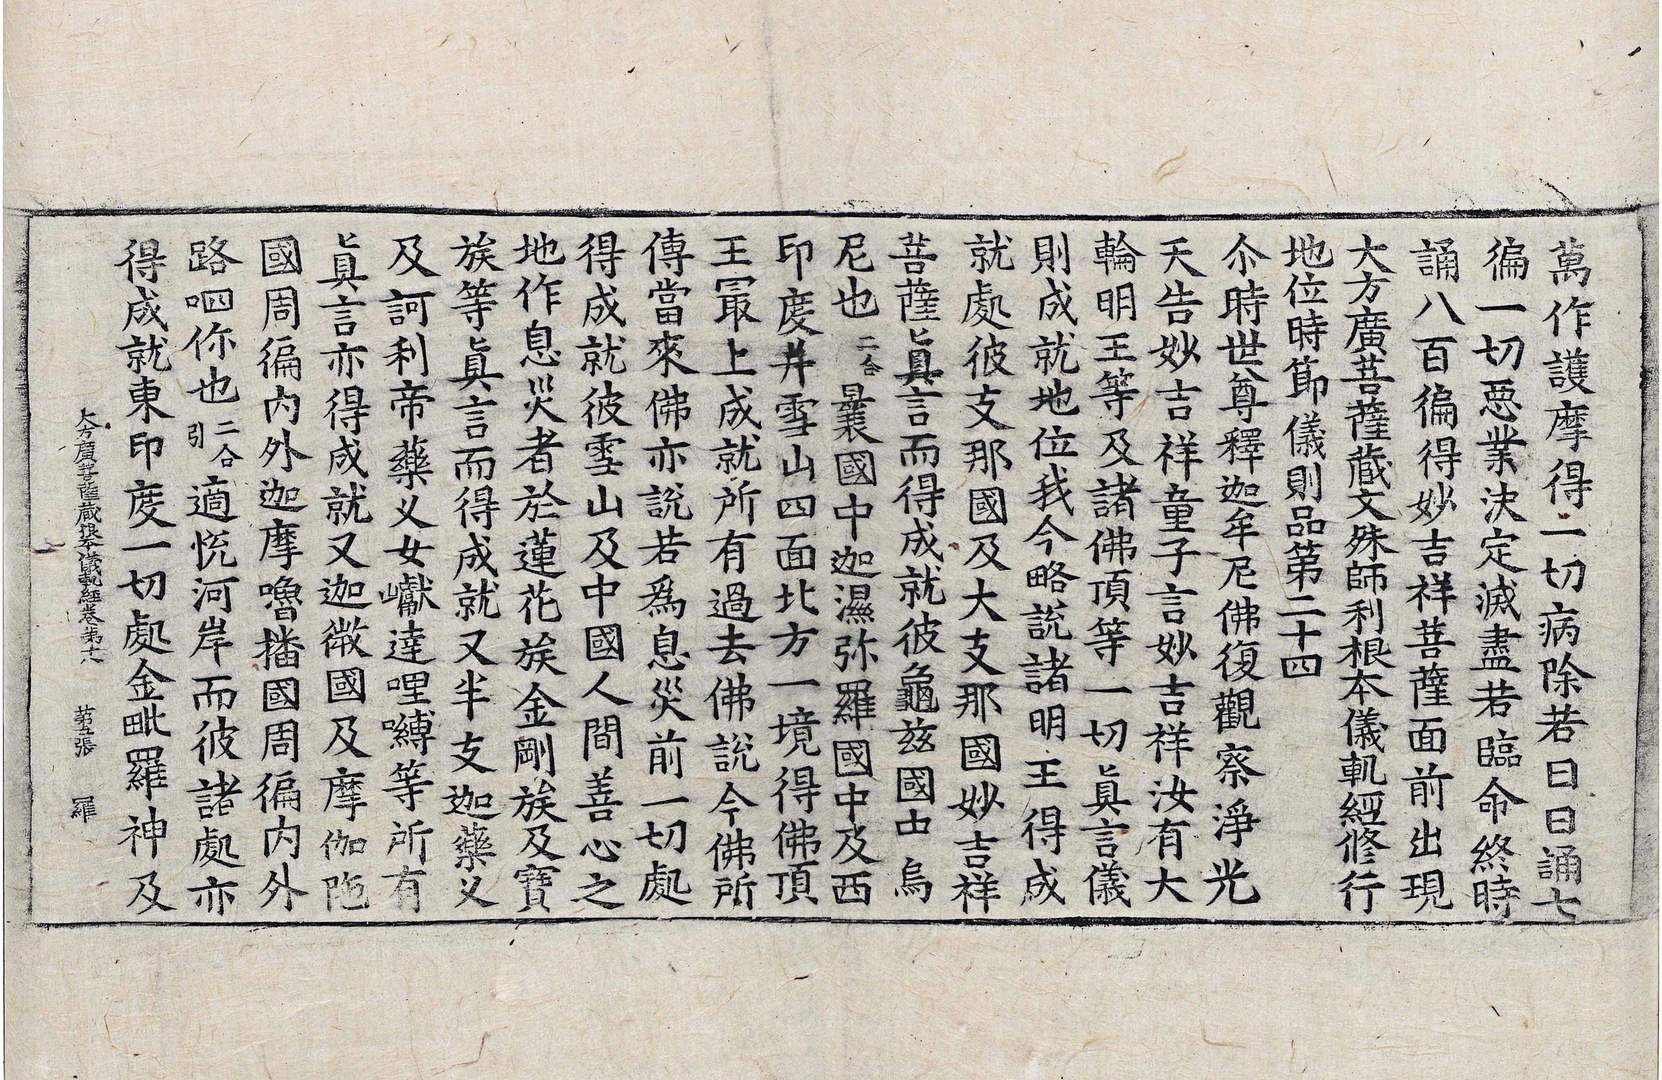 萬作護摩得一切病除若日日誦七
徧一切惡業決定滅盡若臨命終時
誦八百徧得妙吉祥菩薩面前出現
大方廣菩薩藏文殊師利根本儀軌經修行
地位時節儀則品第二十四
尒時世尊釋迦牟尼佛復觀察淨光
天告妙吉祥童子言妙吉祥汝有大
輪明王等及諸佛頂等一切眞言儀
則成就地位我今略說諸明王得成
就處彼支那國及大支那國妙吉祥
菩薩眞言而得成就彼龜茲國中烏
尼也二合曩國中迦濕弥羅國中及西
印度幷雪山四面北方一境得佛頂
王冣上成就所有過去佛說今佛所
傳當來佛亦說若爲息災前一切處
得成就彼雪山及中國人間善心之
地作息災者於蓮花族金剛族及寶
族等眞言而得成就又半支迦藥义
及訶利帝藥义女巘達哩嚩等所有
眞言亦得成就又迦微國及摩伽陁
國周徧内外迦摩嚕播國周徧内外
路呬你也二合引適怳河岸而彼諸處亦
得成就東印度一切處金毗羅神及
大方廣菩薩藏根本儀軌經卷第十八 第五張 羅